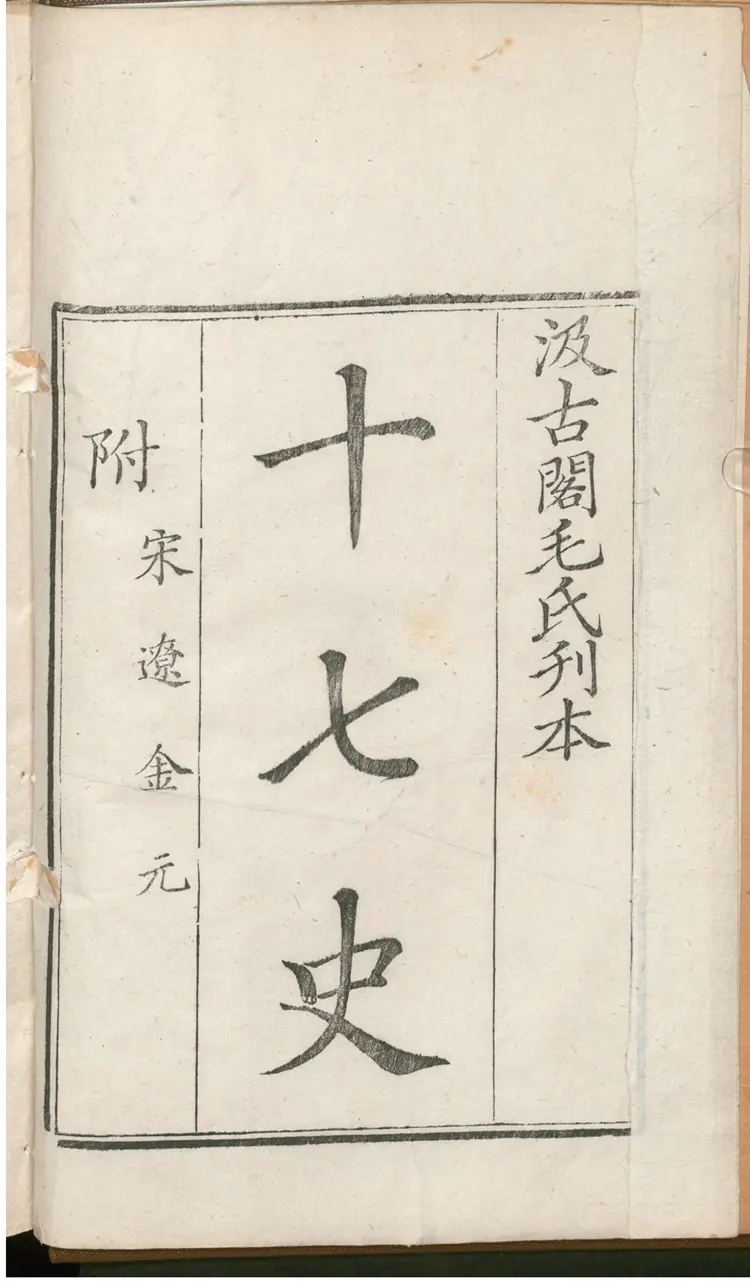 汲古閣毛氏刋本
十七史
附宋遼金元